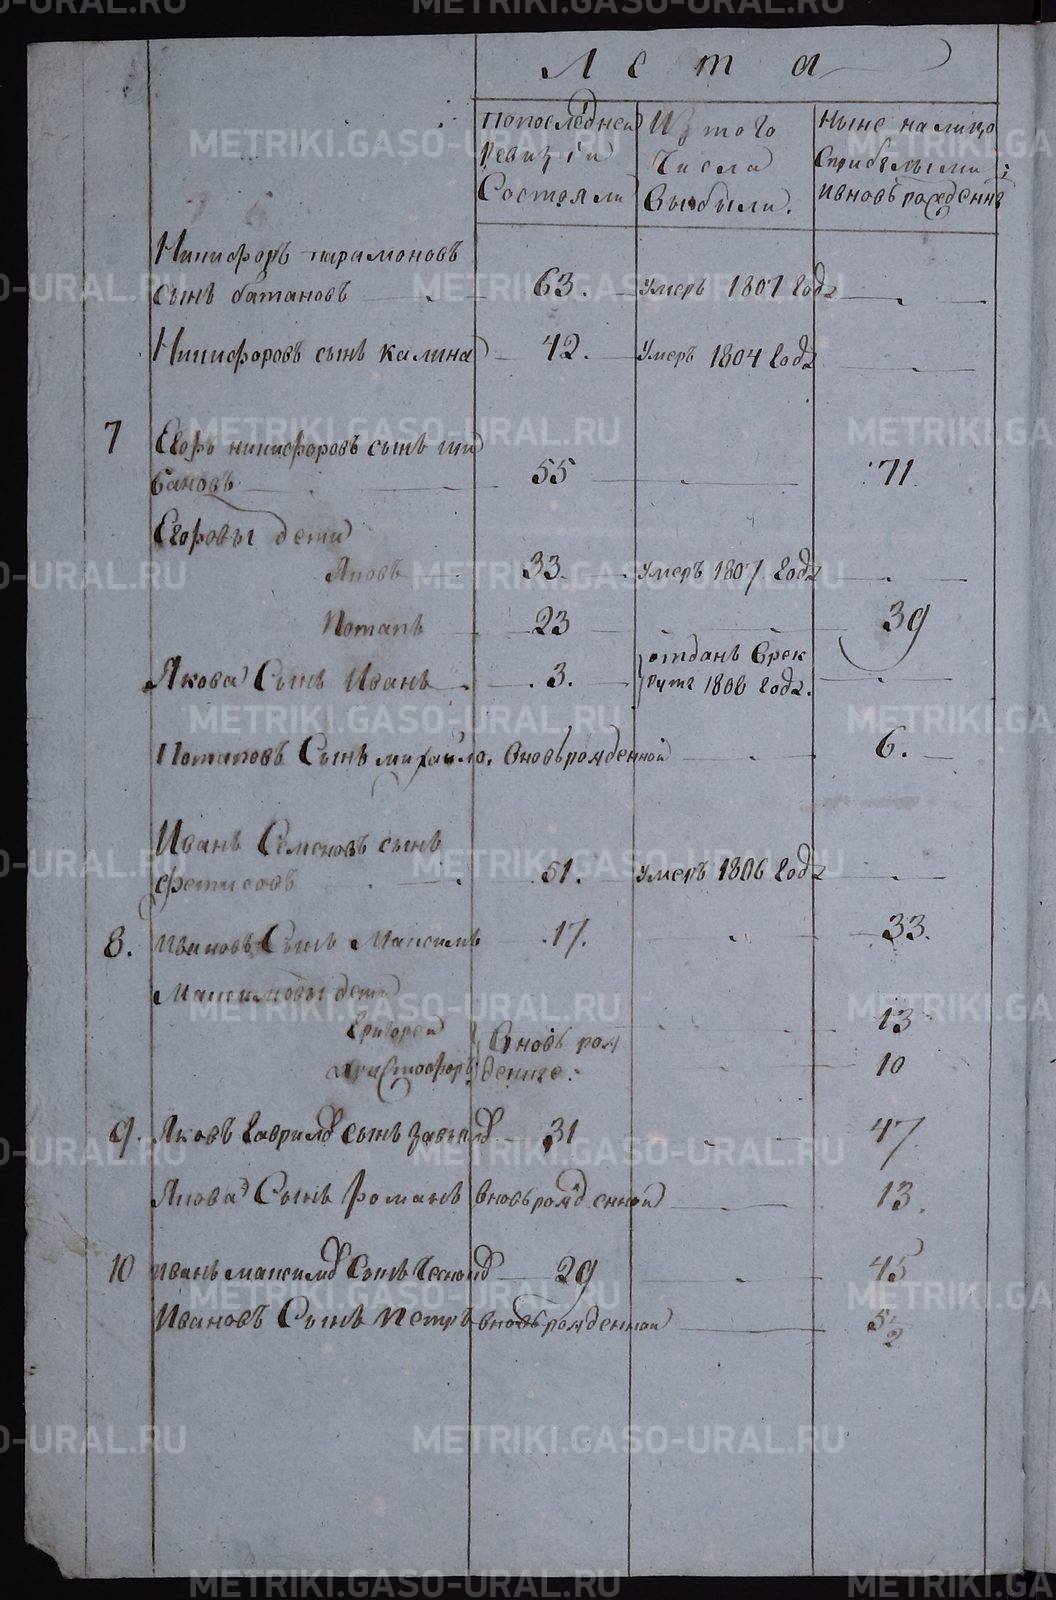 Лета
По последней Ревизiи Состояли
Из того Числа Выбыли.
Ныне на лицо Сприбылыми и вновь рожденнѣ
Никифоръ парамоновъ
сынъ батановъ 63. умеръ 1807 года
Никифоровъ сынъ калина 42. умеръ 1804 года
7 Егоръ никифоровъ сынъ ши
бановъ 55 71
Егоровы дети
Яковъ 33. умеръ 1807 года
Потапъ 23 39
Якова Сынъ Иванъ 3. отданъ Врек
руты 1806 года.
Потаповъ Сынъ михайло, вновьрожденной 6.
Иванъ Семеновъ сынъ
фетисовъ 51. умеръ 1806 года
8. ивановъ Сынъ Максимъ 17. 33.
Максимовы дети
Григорей Вновь рож 13
христофоръ денные: 10
9. Яковъ Гаврилов сынъ 31 47
Якова Сынъ Романъ вновьрожденной 13.
10 иванъ максимов Сынъ 29 45
Ивановъ Сынъ петръ вновьрожденной 5 1/2
METRIKI.GASO-URAL.RU